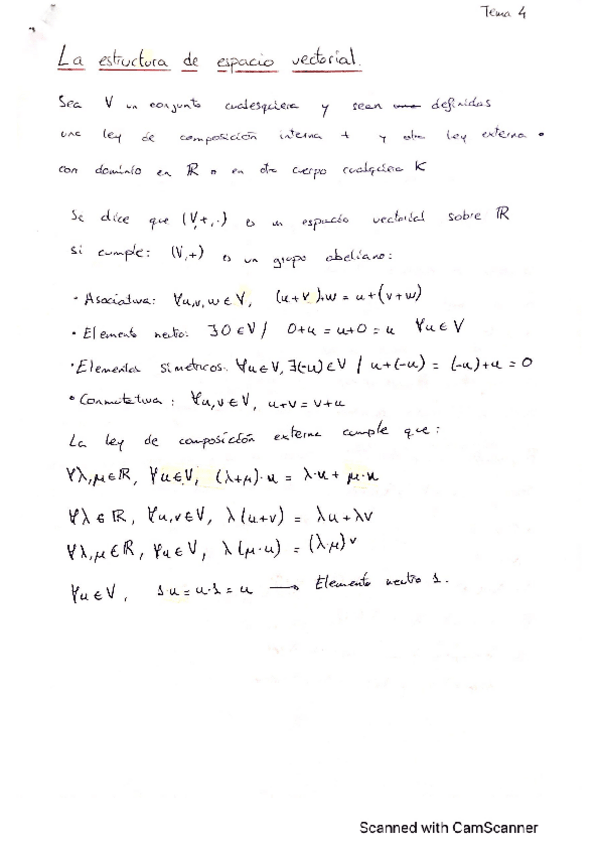 Tema 4
La estructura de espacio vectorial.
Sea V un conjunto cualesquiera y sean definidas
una ley de composición interna + y otra ley externa •
con dominio en ℝ o en otro cuerpo cualquiera K
Se dice que (V,+,·) es un espacio vectorial sobre ℝ
si cumple: (V,+) es un grupo abeliano:
· Asociativa: ∀u,v,w∈V, (u+v)+w = u+(v+w)
• Elemento neutro: ∃0∈V / 0+u=u+0=u ∀u∈V
· Elementos simétricos. ∀u∈V, ∃(-u)∈V / u+(-u) = (-u)+u = 0
• Conmutativa: ∀u,v∈V, u+v=v+u
La ley de composición externa cumple que:
∀λ,μ∈ℝ, ∀u∈V, (λ+μ)·u = λ·u + μ·u
∀λ∈ℝ, ∀u,v∈V, λ(u+v) = λu+λv
∀λ,μ∈ℝ, ∀u∈V, λ(μ·u) = (λ·μ)v
∀u∈V, 1·u=u·1=u → Elemento neutro 1.
Scanned with CamScanner